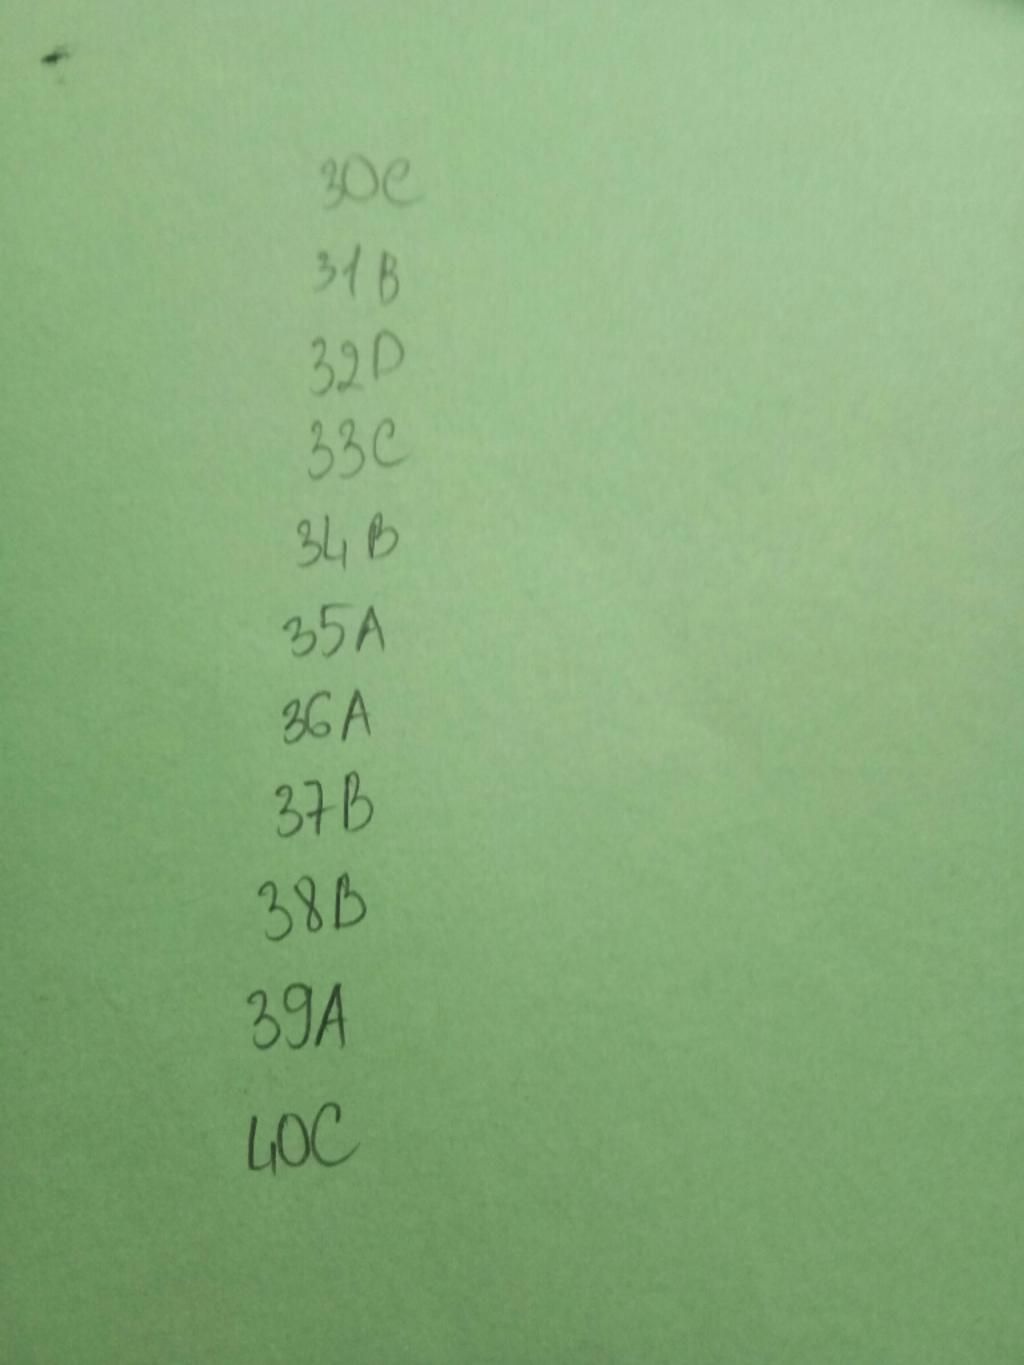 30C
31B
32D
33C
34B
35A
36A
37B
38B
39A
40C